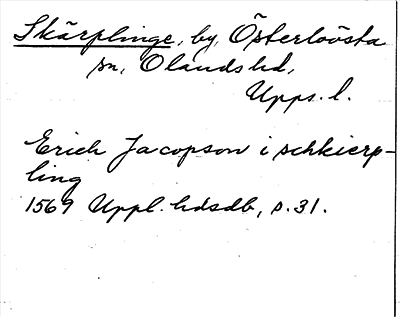 Skärplinge, by, Österlövsta
sn, Olands hd,
Upps. l.
Erich Jacopson i schkierp-
ling
1569 Uppl. hdsdb, s. 31.